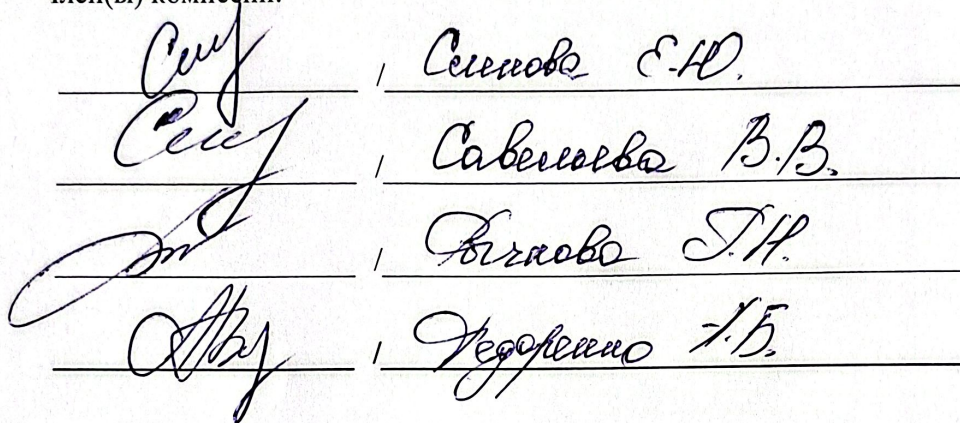 член(ы) комиссии:
/ Семнова Е.Ю.
/ Савельева В.В.
/ Рычкова Г.Н.
/ Федоренко Х.Б.